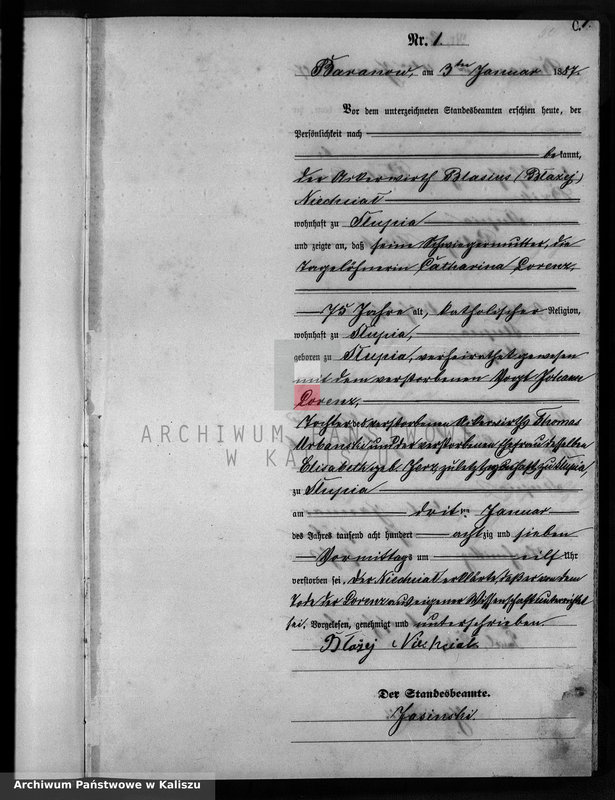 C. 1.
Nr. 1.
Baranow, am 3ten Januar 1887.
Vor dem unterzeichneten Standesbeamten erschien heute, der
Persönlichkeit nach
bekannt,
der Ackerwirth Blasius (Blazej)
Niechcial
wohnhaft zu Slupia
und zeigte an, daß seine Schwiegermutter, die
Tagelöhnerin Catharina Lorenz,
75 Jahre alt, katholischer Religion,
wohnhaft zu Slupia,
geboren zu Slupia, verheirathet gewesen
mit dem verstorbenen Vogt Johann
Lorenz,
Tochter des verstorbenen Ackerwirths Thomas
Urbanski und der verstorbenen Ehefrau desselben
Elisabeth geb. zuletzt wohnhaft zu Slupia,
zu Slupia
am dritten Januar
des Jahres tausend acht hundert achtzig und sieben
Vormittags um eilf Uhr
verstorben sei. Der Niechcial erklärte, daß er von dem
Tode der Lorenz aus eigener Wissenschaft unterrichtet
sei. Vorgelesen, genehmigt und unterschrieben
Błażej Niechciał
Der Standesbeamte.
Jasinski.
ARCHIWUM PAŃSTWOWE
W KALISZU
Archiwum Państwowe w Kaliszu